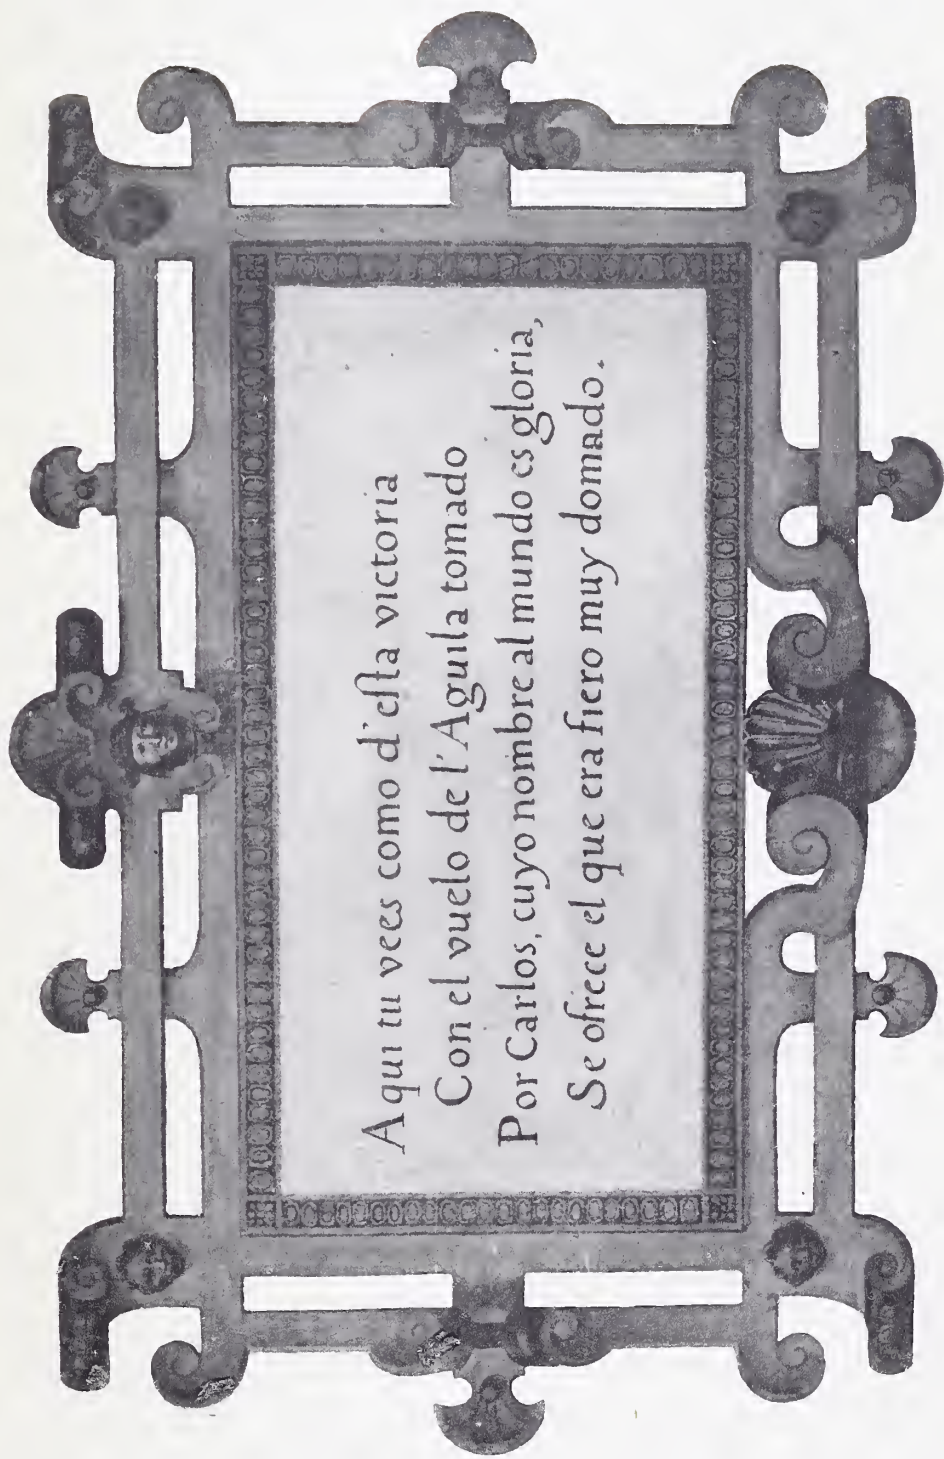 Aqui tu vees como d'eſta victoria
Con el vuelo de l'Aguila tomado
Por Carlos, cuyo nombre al mundo es gloria,
Se ofrece el que era fiero muy domado.